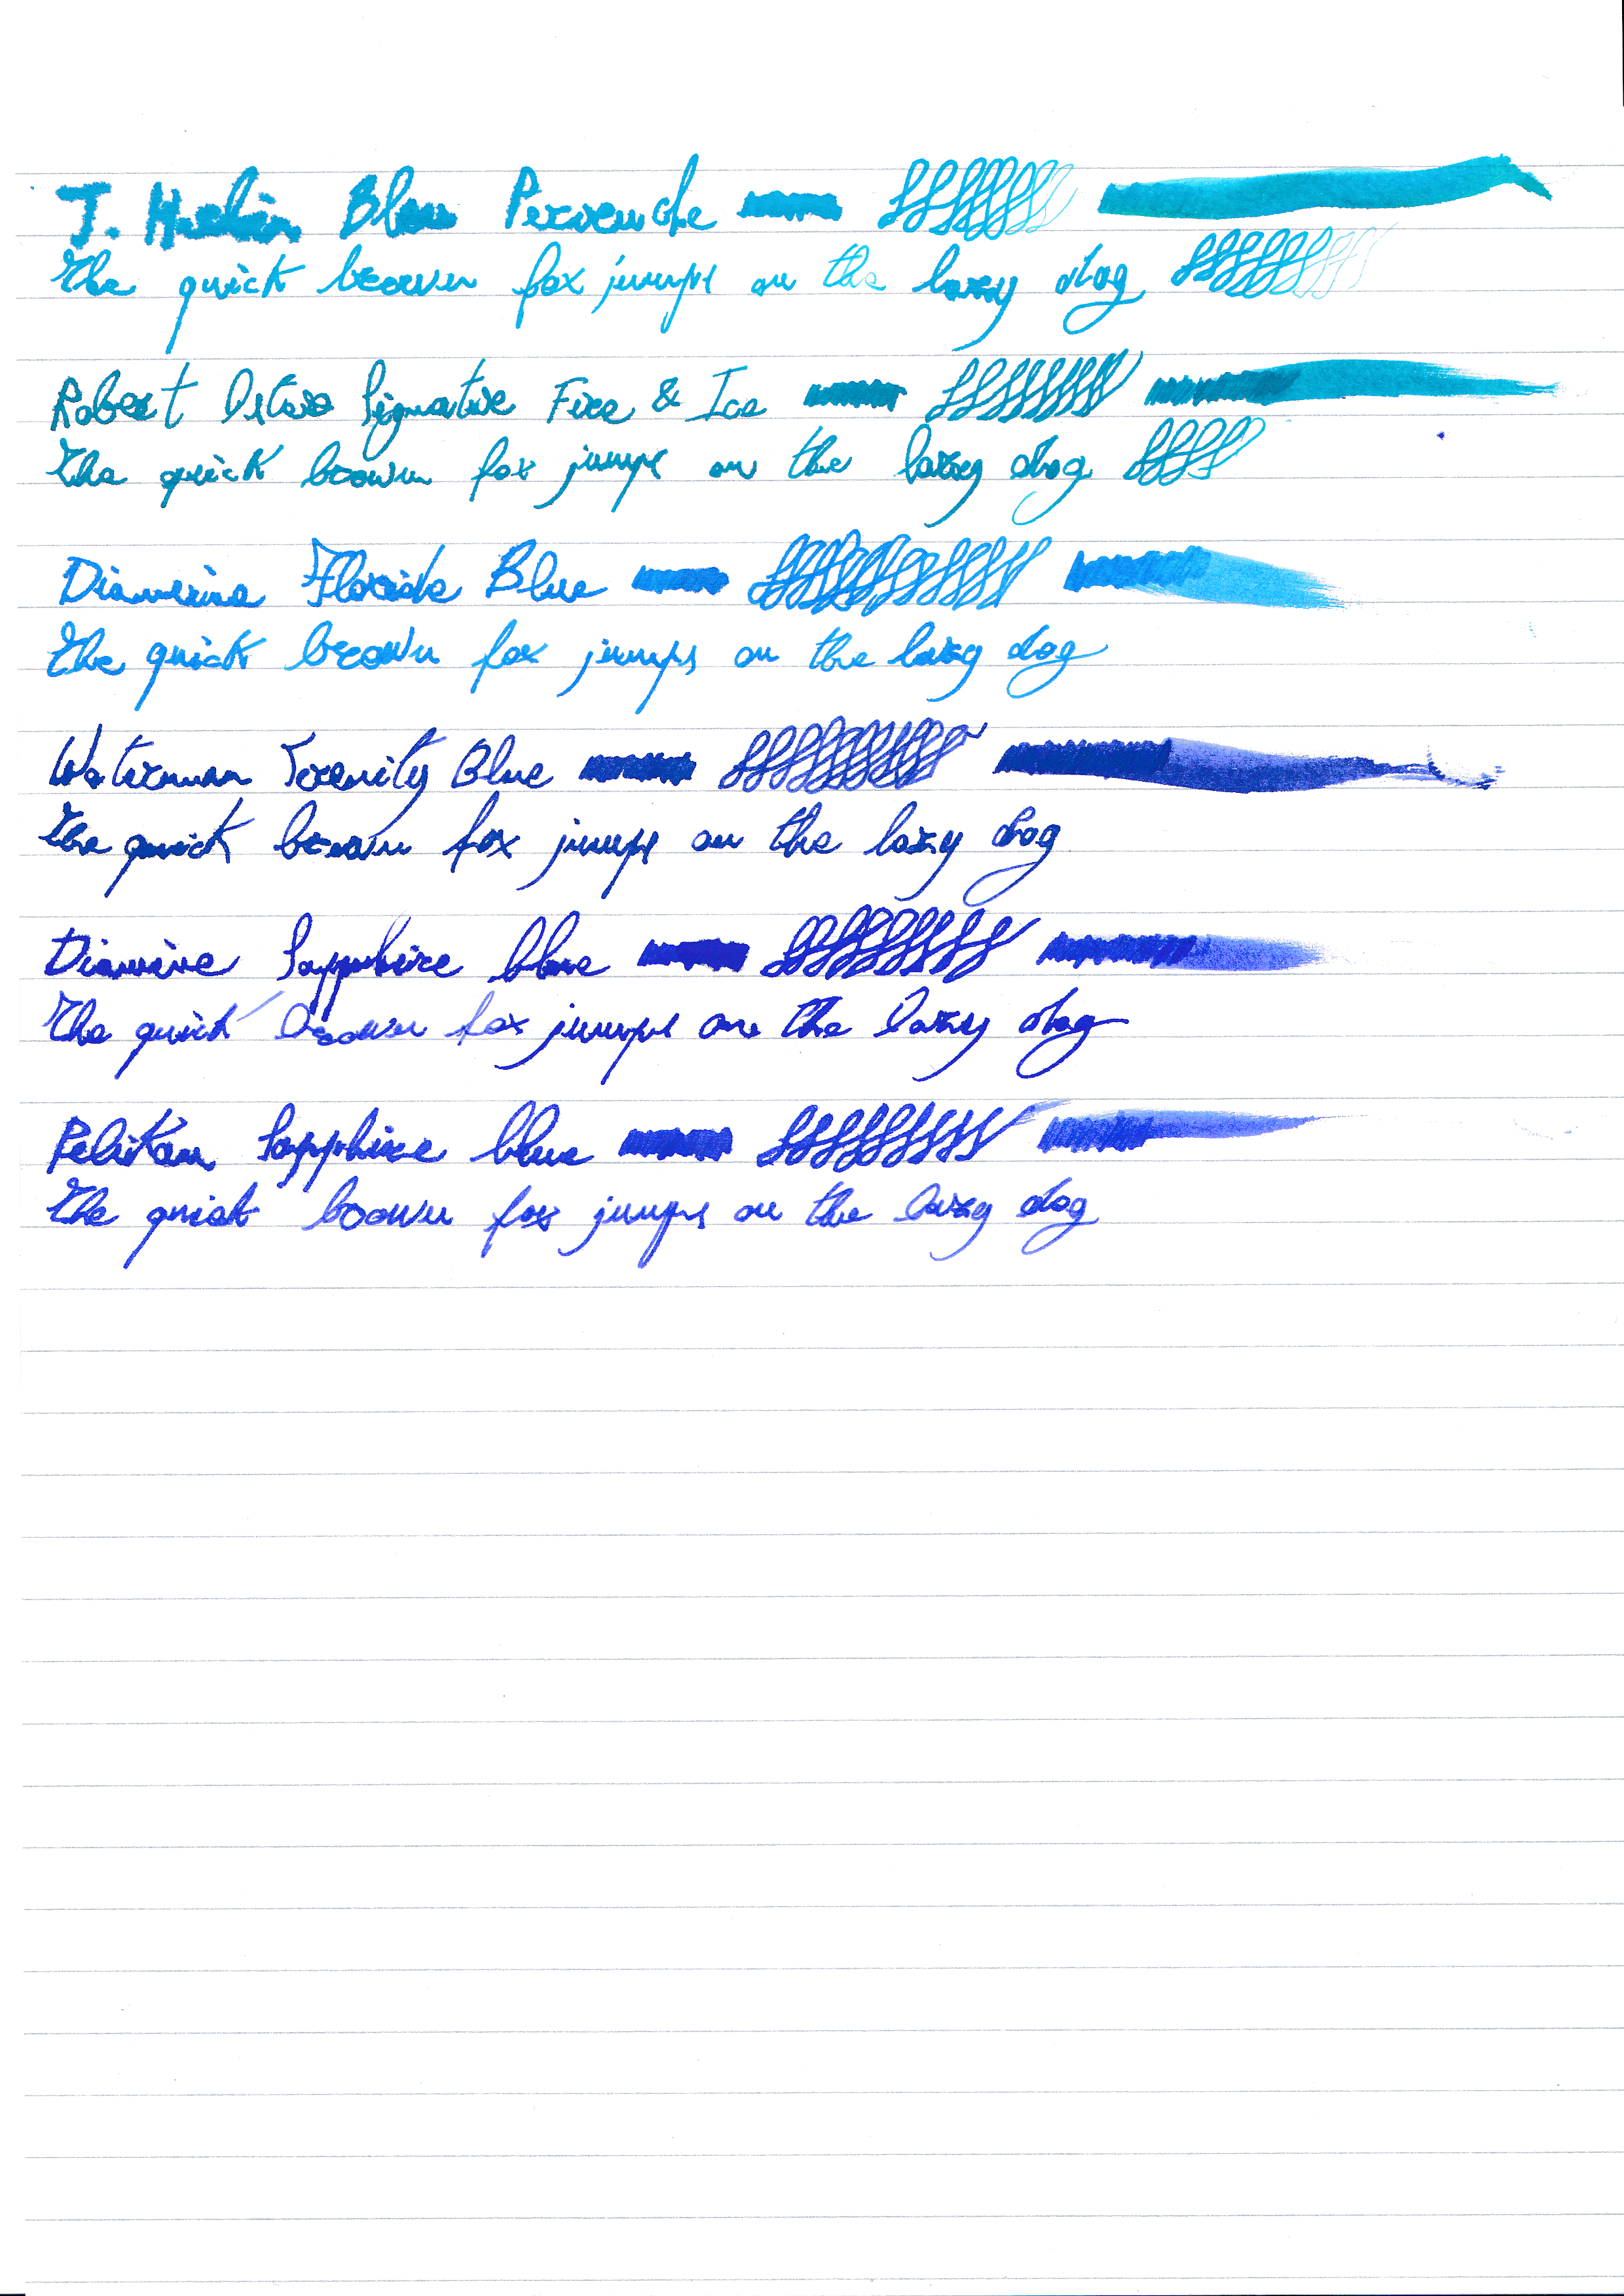 J. Herbin Bleu Pervenche
The quick brown fox jumps on the lazy dog
Robert Oster Signature Fire & Ice
The quick brown fox jumps on the lazy dog
Diamine Florida Blue
The quick brown fox jumps on the lazy dog
Waterman Serenity Blue
The quick brown fox jumps on the lazy dog
Diamine Sapphire blue
The quick brown fox jumps on the lazy dog
Pelikan Sapphire blue
The quick brown fox jumps on the lazy dog